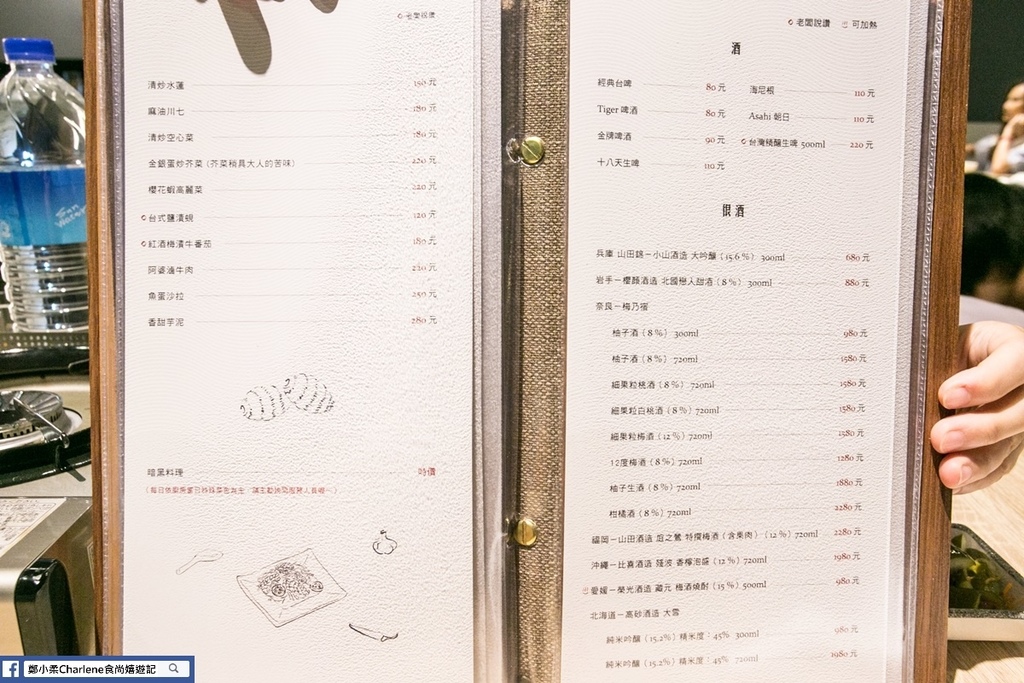 老闆說讚
清炒水蓮 150 元
麻油川七 180 元
清炒空心菜 180 元
金銀蛋炒芥菜 (芥菜稍具大人的苦味) 220 元
櫻花蝦高麗菜 220 元
台式鹽漬蜆 120 元
紅酒梅漬牛番茄 180 元
阿婆滷牛肉 210 元
魚蛋沙拉 250 元
香甜芋泥 280 元
暗黑料理 時價
老闆說讚 可加熱
酒
經典台啤 80 元
Tiger 啤酒 80 元
金牌啤酒 90 元
十八天生啤 110 元
海尼根 110 元
Asahi 朝日 110 元
台灣精釀生啤 500ml 220 元
很酒
兵庫 山田錦－小山酒造 大吟釀 (15.6%) 300ml 680 元
岩手－櫻顏酒造 北國戀人甜酒 (8%) 300ml 880 元
奈良－梅乃宿
柚子酒 (8%) 300ml 980 元
柚子酒 (8%) 720ml 1580 元
細果粒桃酒 (8%) 720ml 1580 元
細果粒白桃酒 (8%) 720ml 1580 元
細果粒梅酒 (12%) 720ml 1580 元
12度梅酒 (8%) 720ml 1280 元
柚子生酒 (8%) 720ml 1880 元
柑橘酒 (8%) 720ml 2280 元
福岡－山田酒造 庭之鶯 特撰梅酒 (含果肉) (12%) 720ml 2280 元
沖繩－比嘉酒造 殘波 香檬泡盛 (12%) 720ml 1980 元
愛媛－榮光酒造 藏元 梅酒燒酎 (15%) 500ml 980 元
北海道－高砂酒造 大雪
純米吟釀 (15.2%) 精米度：45% 300ml 980 元
純米吟釀 (15.2%) 精米度：45% 720ml 1980 元
鄭小柔Charlene食尚嬉遊記